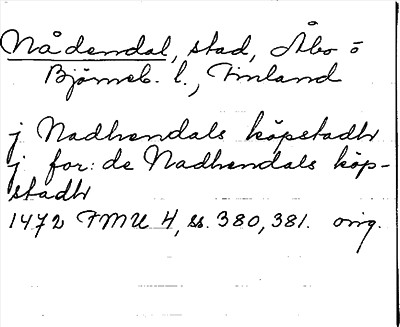 Nådendal, stad, Åbo o
Björneb. l., Finland
j Nadhendals köpstadh
j for: de Nadhendals köp-
stadh
1472 FMU 4, ss. 380, 381. orig.